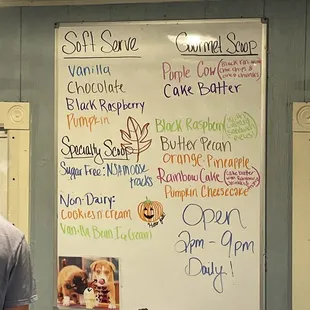 Soft Serve
Vanilla
Chocolate
Black Raspberry
Pumpkin
Specialty Scoop
Sugar Free: NSA moose
tracks
Non-Dairy:
Cookies n cream
Vanilla Bean Ice Cream
Gourmet Scoop
Purple Cow
Cake Batter
Black Raspberry
Butter Pecan
Orange Pineapple
Rainbow Cake
Pumpkin Cheesecake
Open
2pm - 9pm
Daily!